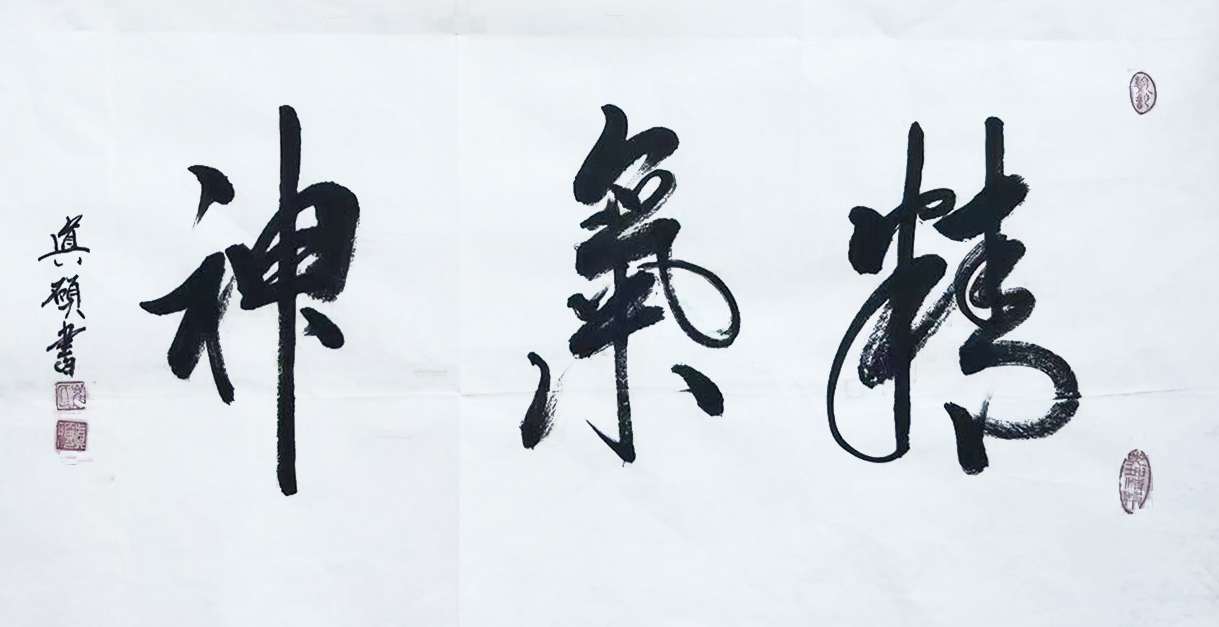 精氣神
真碩書